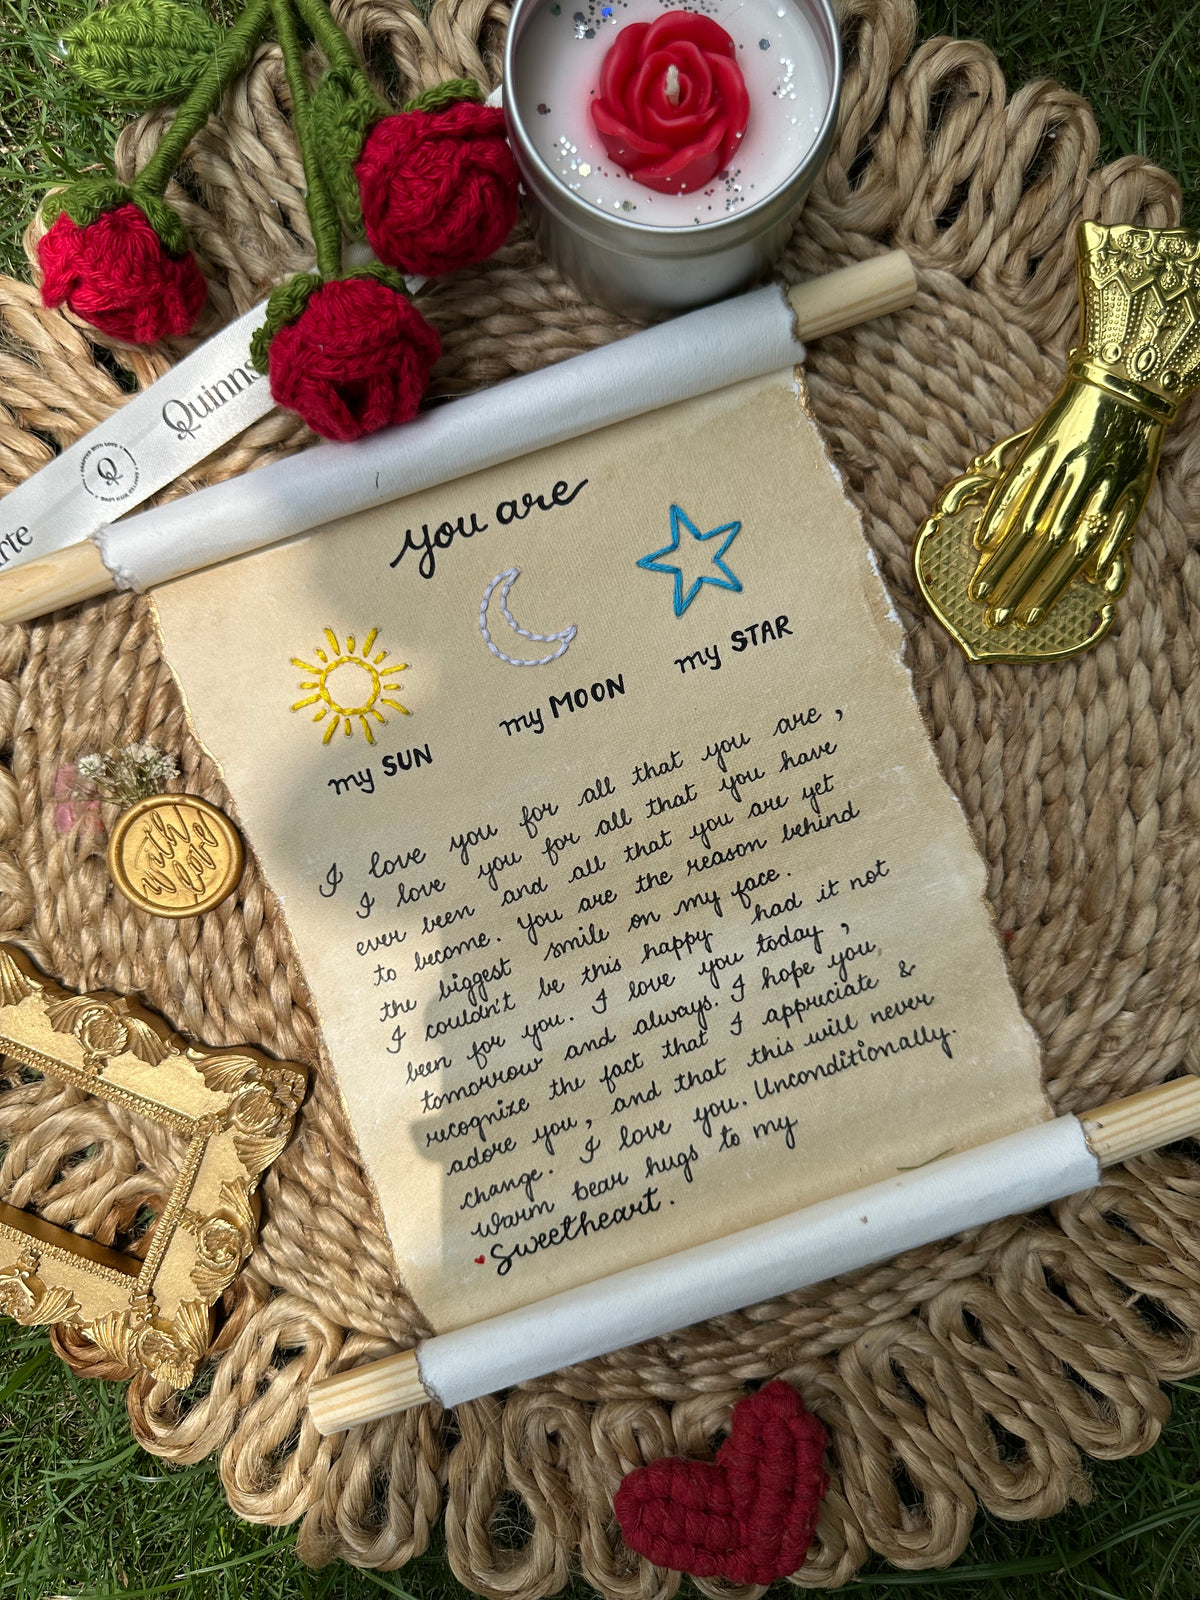 Quinns
arte
Q
CRAFTED WITH LOVE
you are
my SUN
my MOON
my STAR
I love you for all that you are ,
I love you for all that you have
ever been and all that you are yet
to become. You are the reason behind
the biggest smile on my face.
I couldn't be this happy had it not
been for you. I love you today ,
tomorrow and always. I hope you
recognize the fact that I appreciate &
adore you, and that this will never
change. I love you. Unconditionally.
warm bear hugs to my
Sweetheart.
with
love